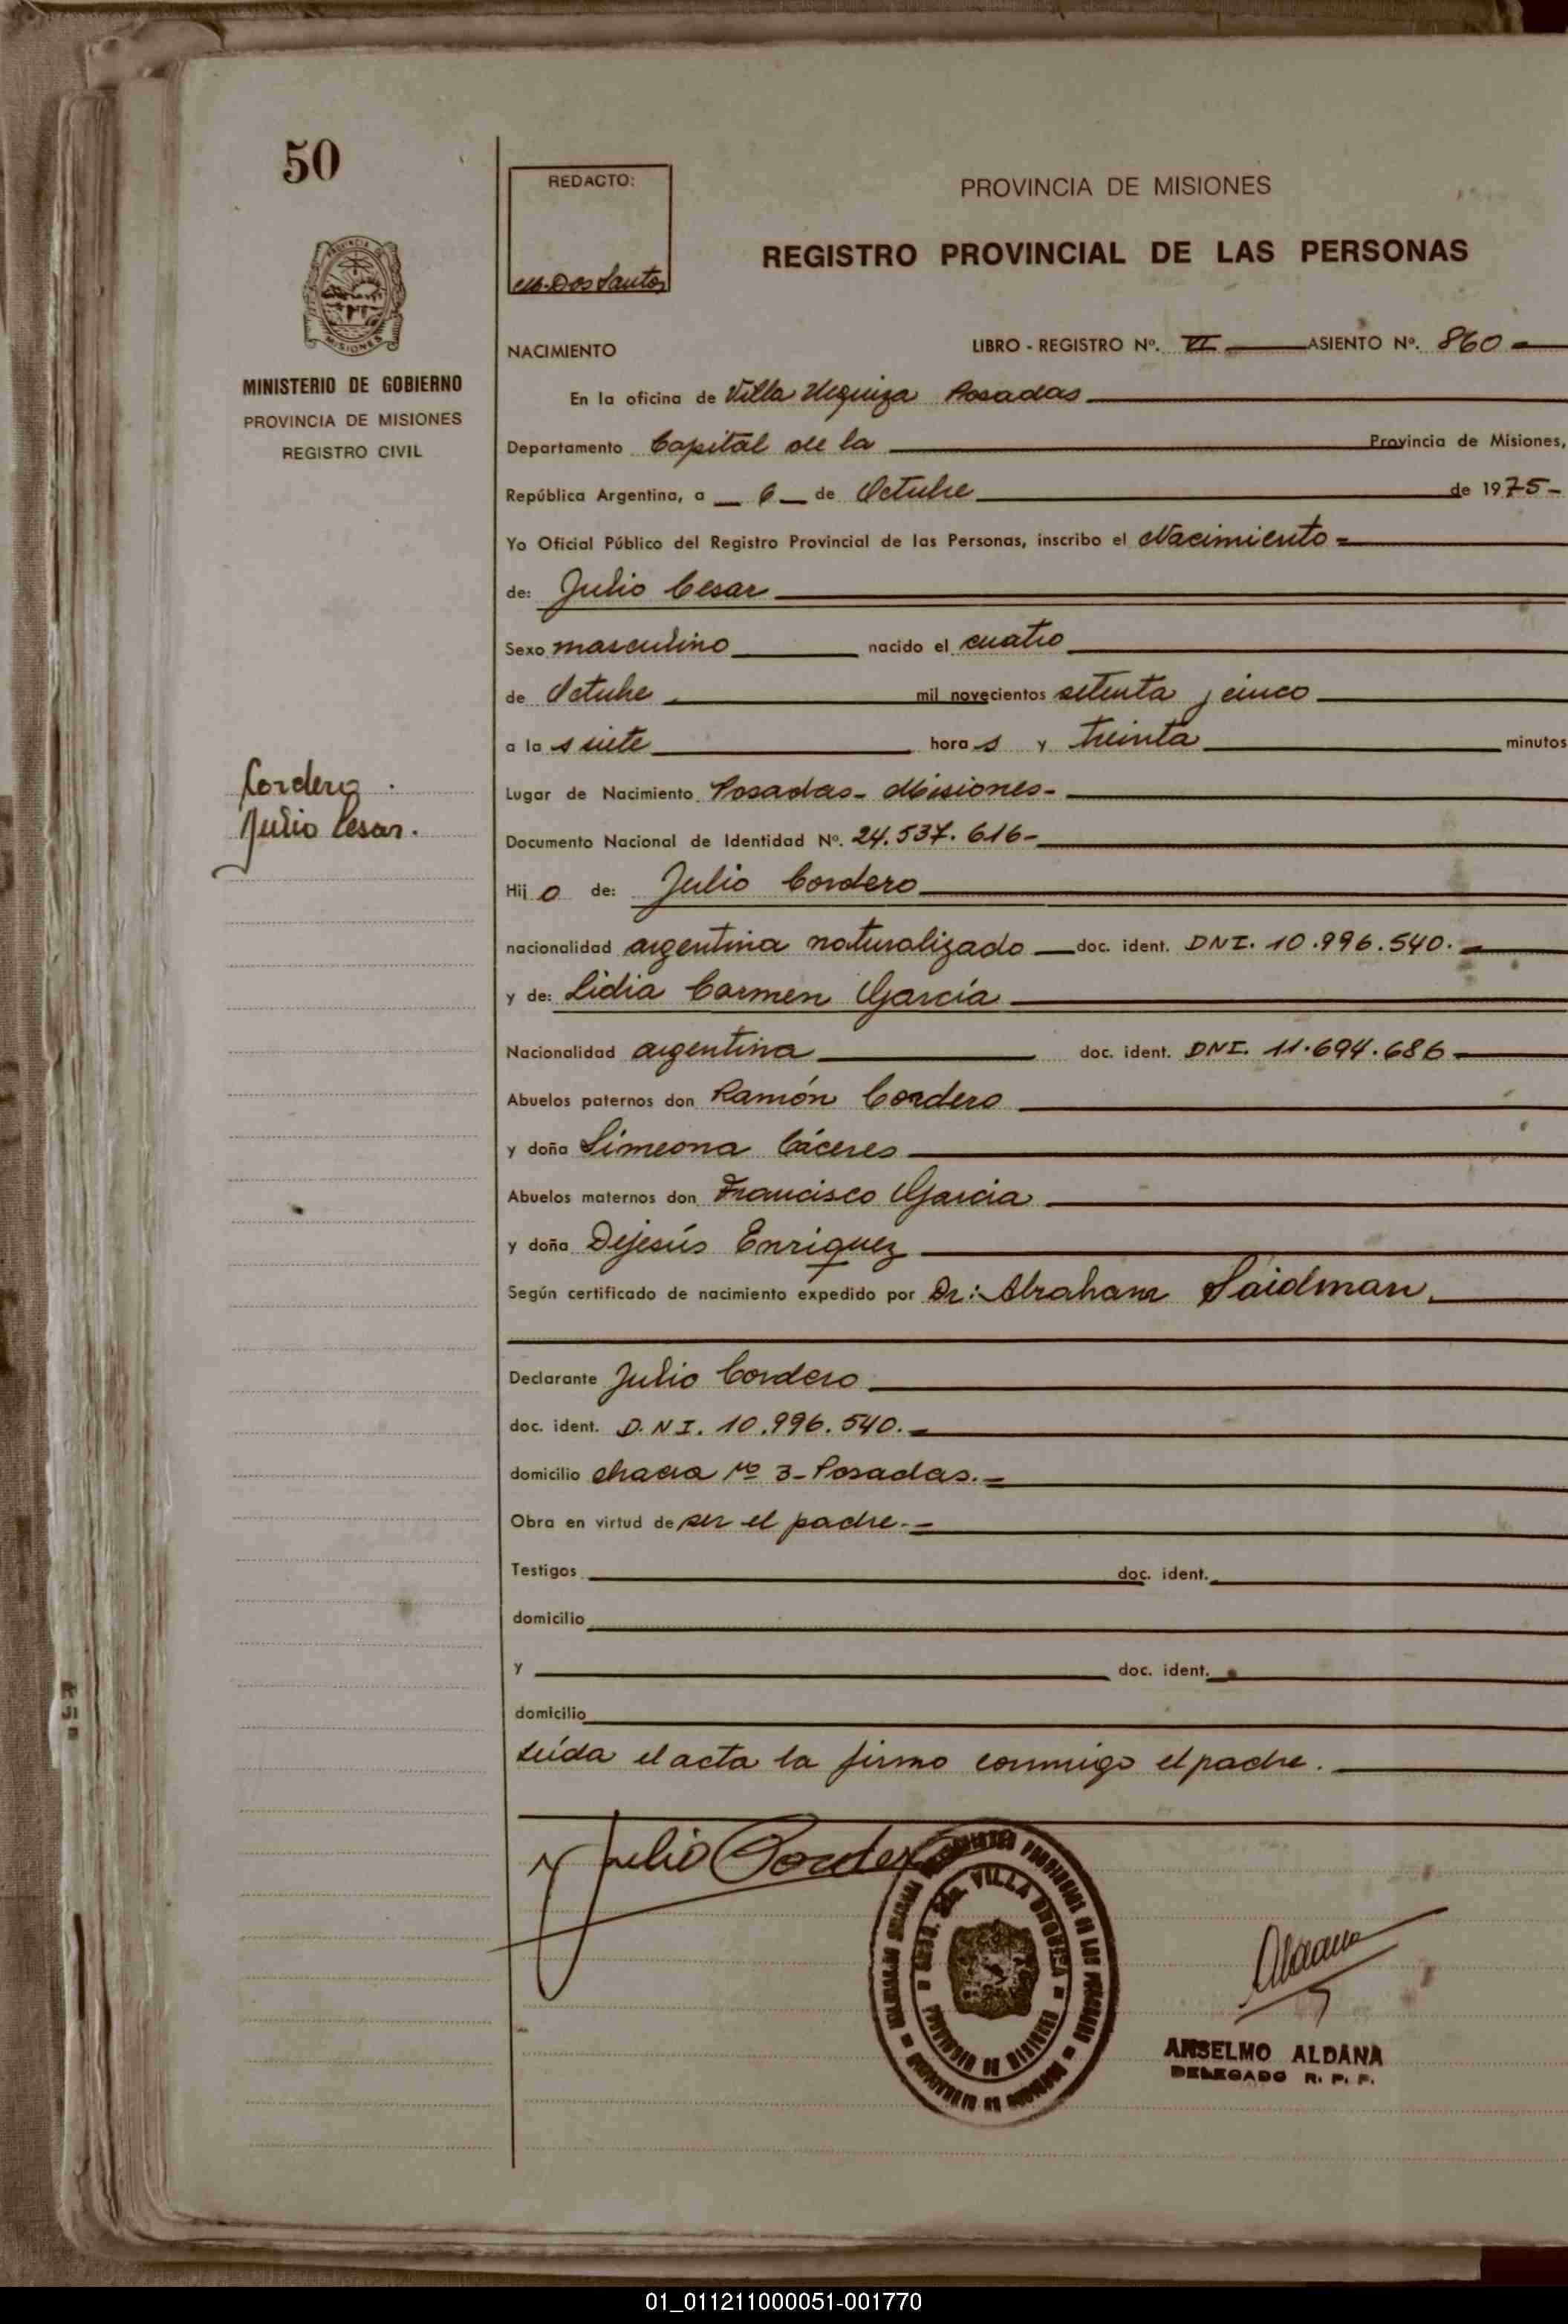 50
REDACTO:
M. Dos Santos
PROVINCIA DE MISIONES
REGISTRO PROVINCIAL DE LAS PERSONAS
PROVINCIA DE
MISIONES
MINISTERIO DE GOBIERNO
PROVINCIA DE MISIONES
REGISTRO CIVIL
NACIMIENTO LIBRO - REGISTRO Nº. VI ASIENTO Nº. 860
En la oficina de Villa Urquiza Posadas
Departamento Capital de la Provincia de Misiones,
República Argentina, a 6 de Octubre de 1975-
Yo Oficial Público del Registro Provincial de las Personas, inscribo el Nacimiento
de: Julio Cesar
Sexo masculino nacido el cuatro
de Octubre mil novecientos setenta y cinco
a la s siete hora s y treinta minutos
Cordero.
Julio Cesar.
Lugar de Nacimiento Posadas- Misiones-
Documento Nacional de Identidad Nº. 24.537.616-
Hij o de: Julio Cordero
nacionalidad argentina naturalizado doc. ident. DNI. 10.996.540.
y de: Lidia Carmen García
Nacionalidad argentina doc. ident. DNI. 11.694.686
Abuelos paternos don Ramón Cordero
y doña Simeona Cáceres
Abuelos maternos don Francisco Garcia
y doña Dejesús Enriquez
Según certificado de nacimiento expedido por Dr: Abraham Saidman.
Declarante Julio Cordero
doc. ident. D.N.I. 10.996.540.
domicilio chacra Nº 3- Posadas.
Obra en virtud de ser el padre.-
Testigos doc. ident.
domicilio
y doc. ident.
domicilio
Leída el acta la firmo conmigo el padre.
Julio Cordero
VILLA URQUIZA
PROVINCIA DE MISIONES
Aldana
ANSELMO ALDANA
DELEGADO R. P. P.
01_011211000051-001770